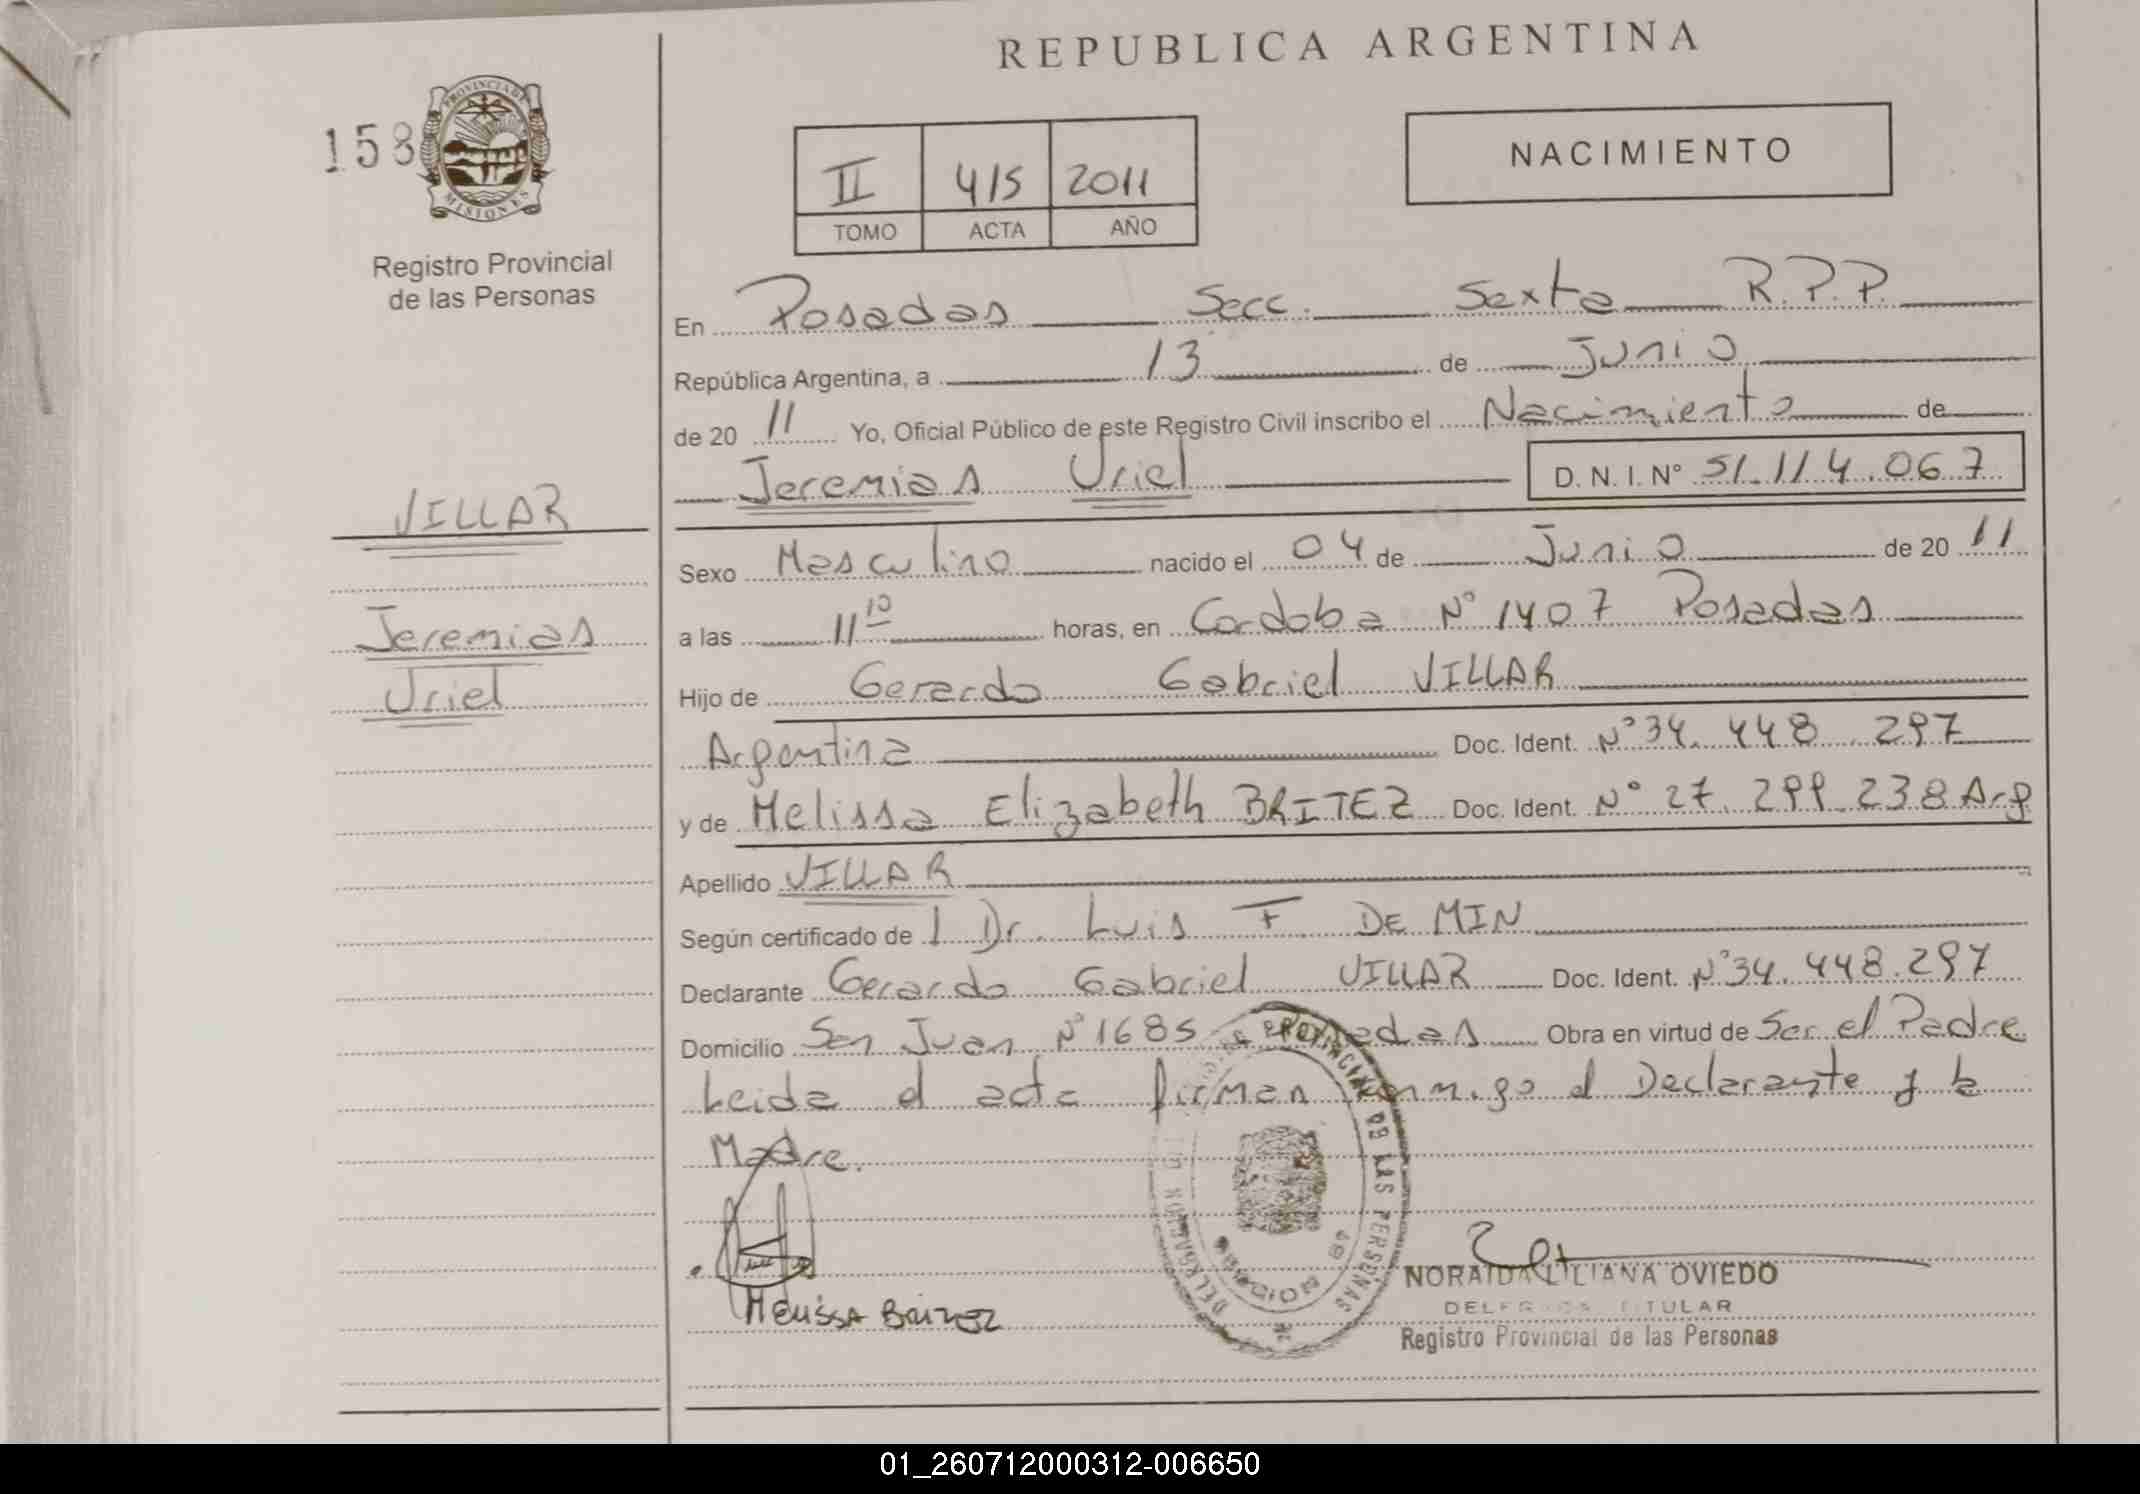 REPUBLICA ARGENTINA
158
PROVINCIA DE
MISIONES
Registro Provincial
de las Personas
II 415 2011
TOMO ACTA AÑO
NACIMIENTO
En Posadas Secc. Sexta R.P.P.
República Argentina, a 13 de Junio
de 20 11 Yo, Oficial Público de este Registro Civil inscribo el Nacimiento de
Jeremias Uriel D. N. I. Nº 51.114.067
VILLAR
Jeremias
Uriel
Sexo Masculino nacido el 04 de Junio de 20 11
a las 11 10 horas, en Cordoba Nº 1407 Posadas
Hijo de Gerardo Gabriel VILLAR
Argentina Doc. Ident. Nº 34.448.297
y de Melissa Elizabeth BRITEZ Doc. Ident. Nº 27.299.238 Arg
Apellido VILLAR
Según certificado de l Dr. Luis F. DE MIN
Declarante Gerardo Gabriel VILLAR Doc. Ident. Nº 34.448.297
Domicilio San Juan Nº 1685 Posadas Obra en virtud de Ser el Padre
Leida el acta firman conmigo el Declarante y la
Madre.
MELISSA BRITEZ
PROVINCIAL DE LAS PERSONAS
NORAIDA LILIANA OVIEDO
DELEGADA TITULAR
Registro Provincial de las Personas
01_260712000312-006650